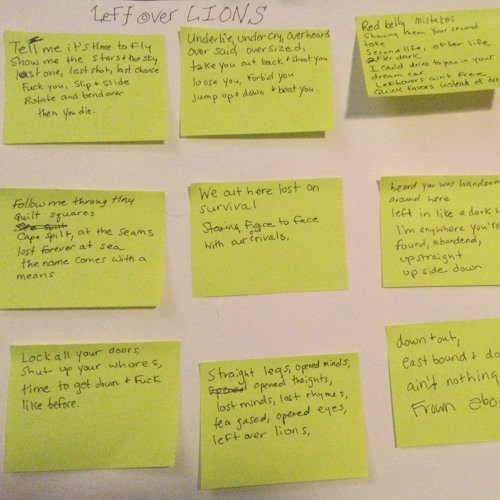 Left over LIONS
Tell me it's time to fly
Show me the stars + the sky
last one, last shot, last chance
Fuck you, Slip + Slide
Rotate and bend over
then you die.
Underlie, under cry, overheard
over said, oversized,
take you out back + shoot you
loose you, forbid you
jump up + down + beat you.
Red belly mistetas
Sharing them your second
take
Second life, after life
after dark
I could drive to you in your
dream car
Leftovers ain't free
Quick favors instead of
Follow me throug tiny
quilt squares
Cape spilt, at the seams
lost forever at sea
the name comes with a
means
We out here lost on
survival
Staring Face to face
with our rivals.
heard you was
around here
left in like a dark
I'm anywhere you're
found, abondend,
upstraight
up side down
Lock all your doors
shut up your whores,
time to get down + Fuck
like before.
Straight legs, opened minds,
opened thoights,
lost minds, lost rhymes,
tea gased, opened eyes,
left over lions,
down + out,
east bound + do
ain't nothing
Frown